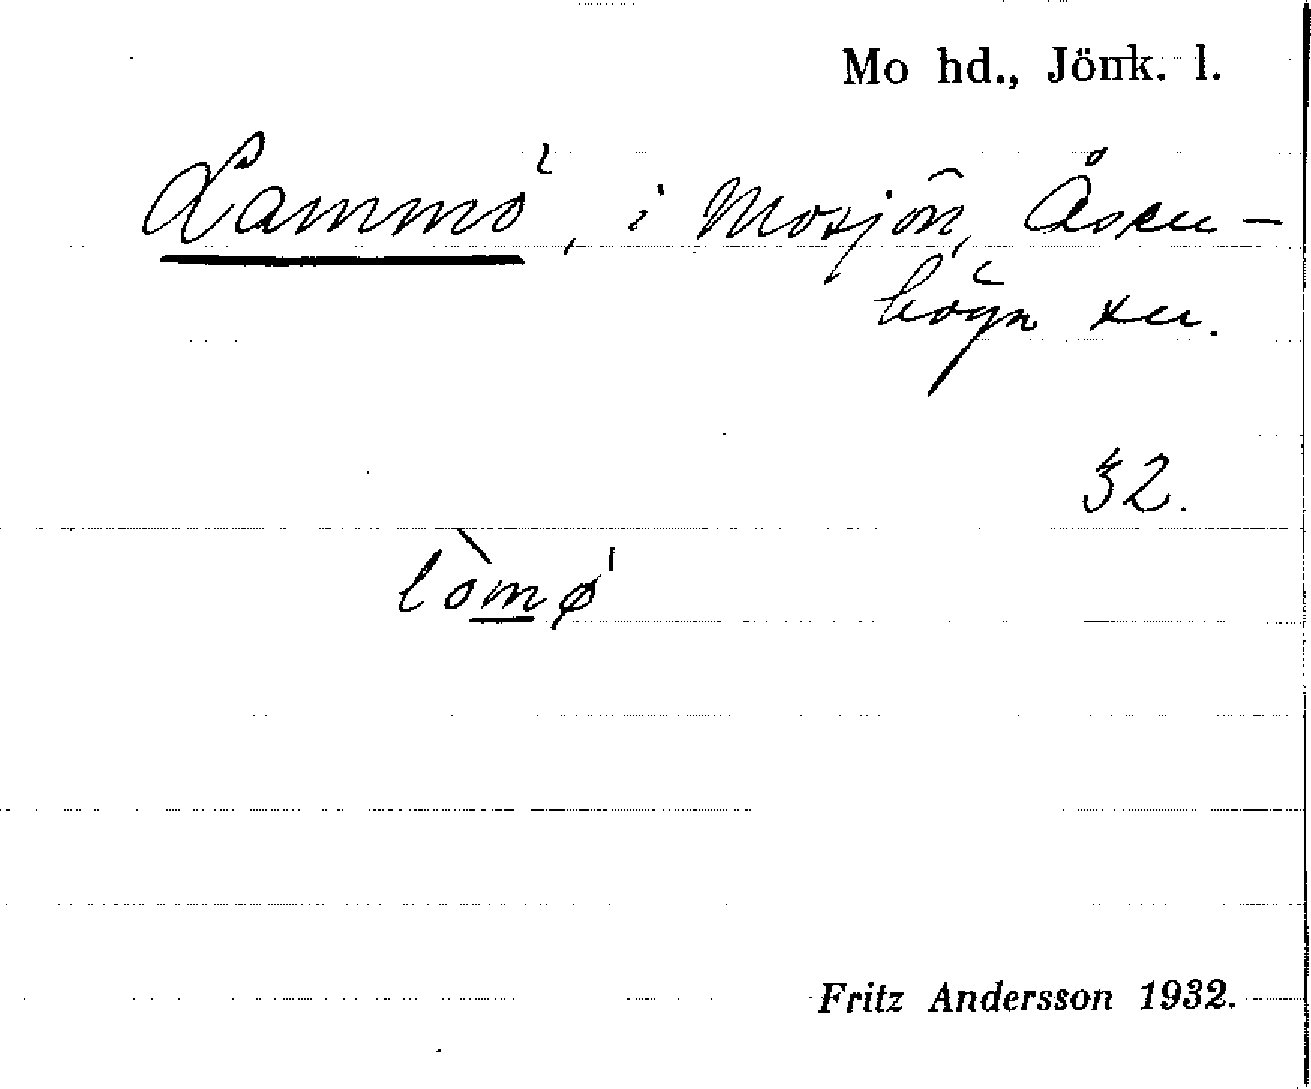 Mo hd., Jönk. l.
Lammö, i Mosjön, Åsen-
höga sn.
32.
lòmø
Fritz Andersson 1932.